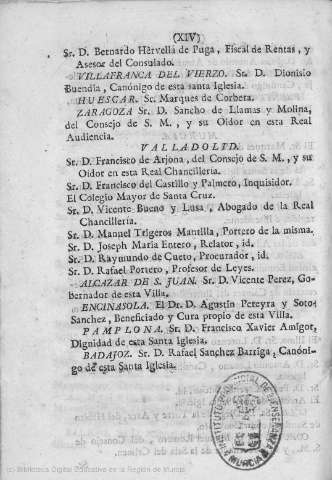 (XIV)
Sr. D. Bernardo Hervella de Puga, Fiscal de Rentas, y
Asesor del Consulado.
VILLAFRANCA DEL VIERZO. Sr. D. Dionisio
Buendia, Canónigo de esta santa Iglesia.
HUESCAR. Sr. Marques de Corbera.
ZARAGOZA Sr. D. Sancho de Llamas y Molina,
del Consejo de S. M., y su Oidor en esta Real
Audiencia.
VALLADOLID.
Sr. D. Francisco de Arjona, del Consejo de S. M., y su
Oidor en esta Real Chancilleria.
Sr. D. Francisco del Castillo y Palmero, Inquisidor.
El Colegio Mayor de Santa Cruz.
Sr. D. Vicente Bueno y Lusa, Abogado de la Real
Chancilleria.
Sr. D. Manuel Trigeros Mantilla, Portero de la misma.
Sr. D. Joseph Maria Entero, Relator, id.
Sr. D. Raymundo de Cueto, Procurador, id.
Sr. D. Rafael Portero, Profesor de Leyes.
ALCAZAR DE S. JUAN. Sr. D. Vicente Perez, Go-
bernador de esta Villa.
ENCINASOLA. El Dr. D. Agustin Pereyra y Soto-
Sanchez, Beneficiado y Cura propio de esta Villa.
PAMPLONA. Sr. D. Francisco Xavier Amigor,
Dignidad de esta Santa Iglesia.
BADAJOZ. Sr. D. Rafael Sanchez Barriga, Canóni-
go de esta Santa Iglesia.
INSTITUTO PROVINCIAL DE ENSEÑANZA
MURCIA
(c) Biblioteca Digital Educativa de la Región de Murcia